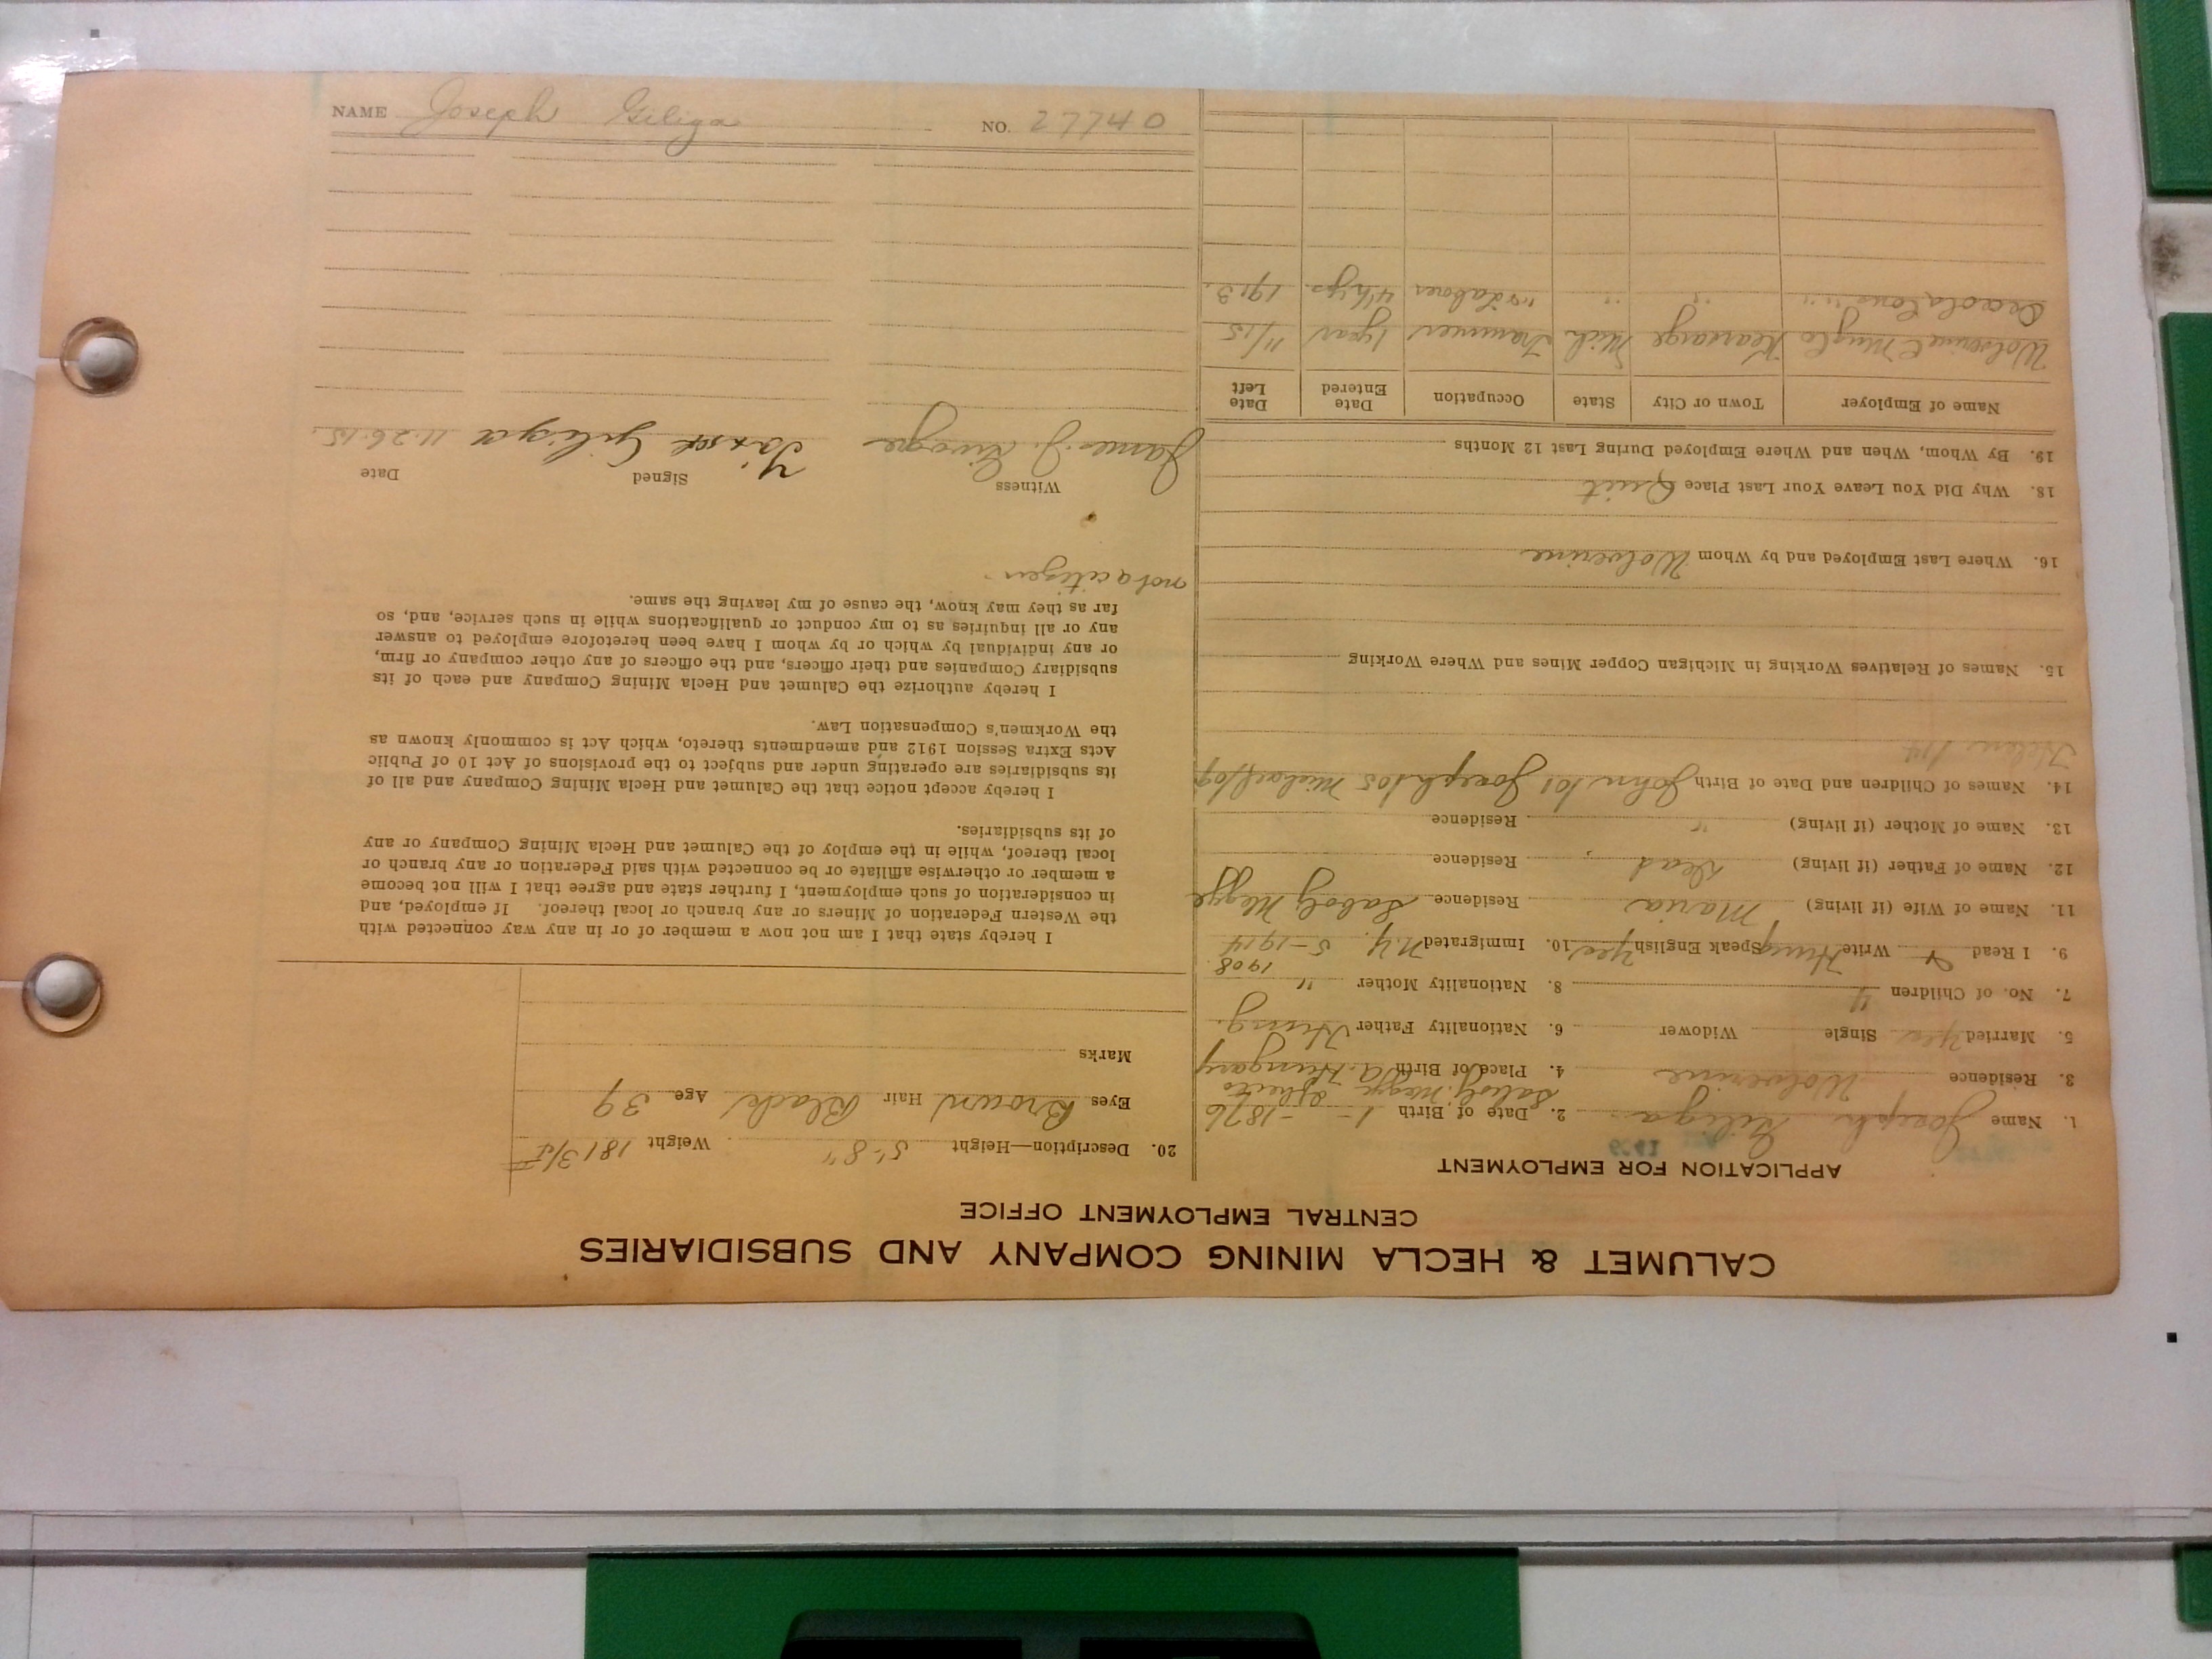 CALUMET & HECLA MINING COMPANY AND SUBSIDIARIES
CENTRAL EMPLOYMENT OFFICE
APPLICATION FOR EMPLOYMENT
1. Name Joseph Giliga 2. Date of Birth 1- -1876
3. Residence Wolverine 4. Place of Birth Hungary
5. Married Yes Single Widower 6. Nationality Father Hung.
7. No. of Children 4 8. Nationality Mother "
1908
9. I Read & Write Hung Speak English Yes 10. Immigrated N.Y. 5-1914
11. Name of Wife (if living) Maria Residence
12. Name of Father (if living) Dead Residence
13. Name of Mother (if living) " Residence
14. Names of Children and Date of Birth John 101 Joseph 105 Michael 109
Helen 114
15. Names of Relatives Working in Michigan Copper Mines and Where Working
16. Where Last Employed and by Whom Wolverine
18. Why Did You Leave Your Last Place Quit
19. By Whom, When and Where Employed During Last 12 Months
Name of Employer Town or City State Occupation Date Entered Date Left
Wolverine Kearsarge Mich Trammer 1 year 11/15
Osceola Cons " " " " 1913.
20. Description—Height 5'-8" Weight 181
Eyes Brown Hair Black Age 39
Marks
I hereby state that I am not now a member of or in any way connected with
the Western Federation of Miners or any branch or local thereof. If employed, and
in consideration of such employment, I further state and agree that I will not become
a member or otherwise affiliate or be connected with said Federation or any branch or
local thereof, while in the employ of the Calumet and Hecla Mining Company or any
of its subsidiaries.
I hereby accept notice that the Calumet and Hecla Mining Company and all of
its subsidiaries are operating under and subject to the provisions of Act 10 of Public
Acts Extra Session 1912 and amendments thereto, which Act is commonly known as
the Workmen's Compensation Law.
I hereby authorize the Calumet and Hecla Mining Company and each of its
subsidiary Companies and their officers, and the officers of any other company or firm,
or any individual by which or by whom I have been heretofore employed to answer
any or all inquiries as to my conduct or qualifications while in such service, and, so
far as they may know, the cause of my leaving the same.
not a citizen.
Witness Signed Date
James J. Giliga 11-26-15.
NAME Joseph Giliga NO. 27740